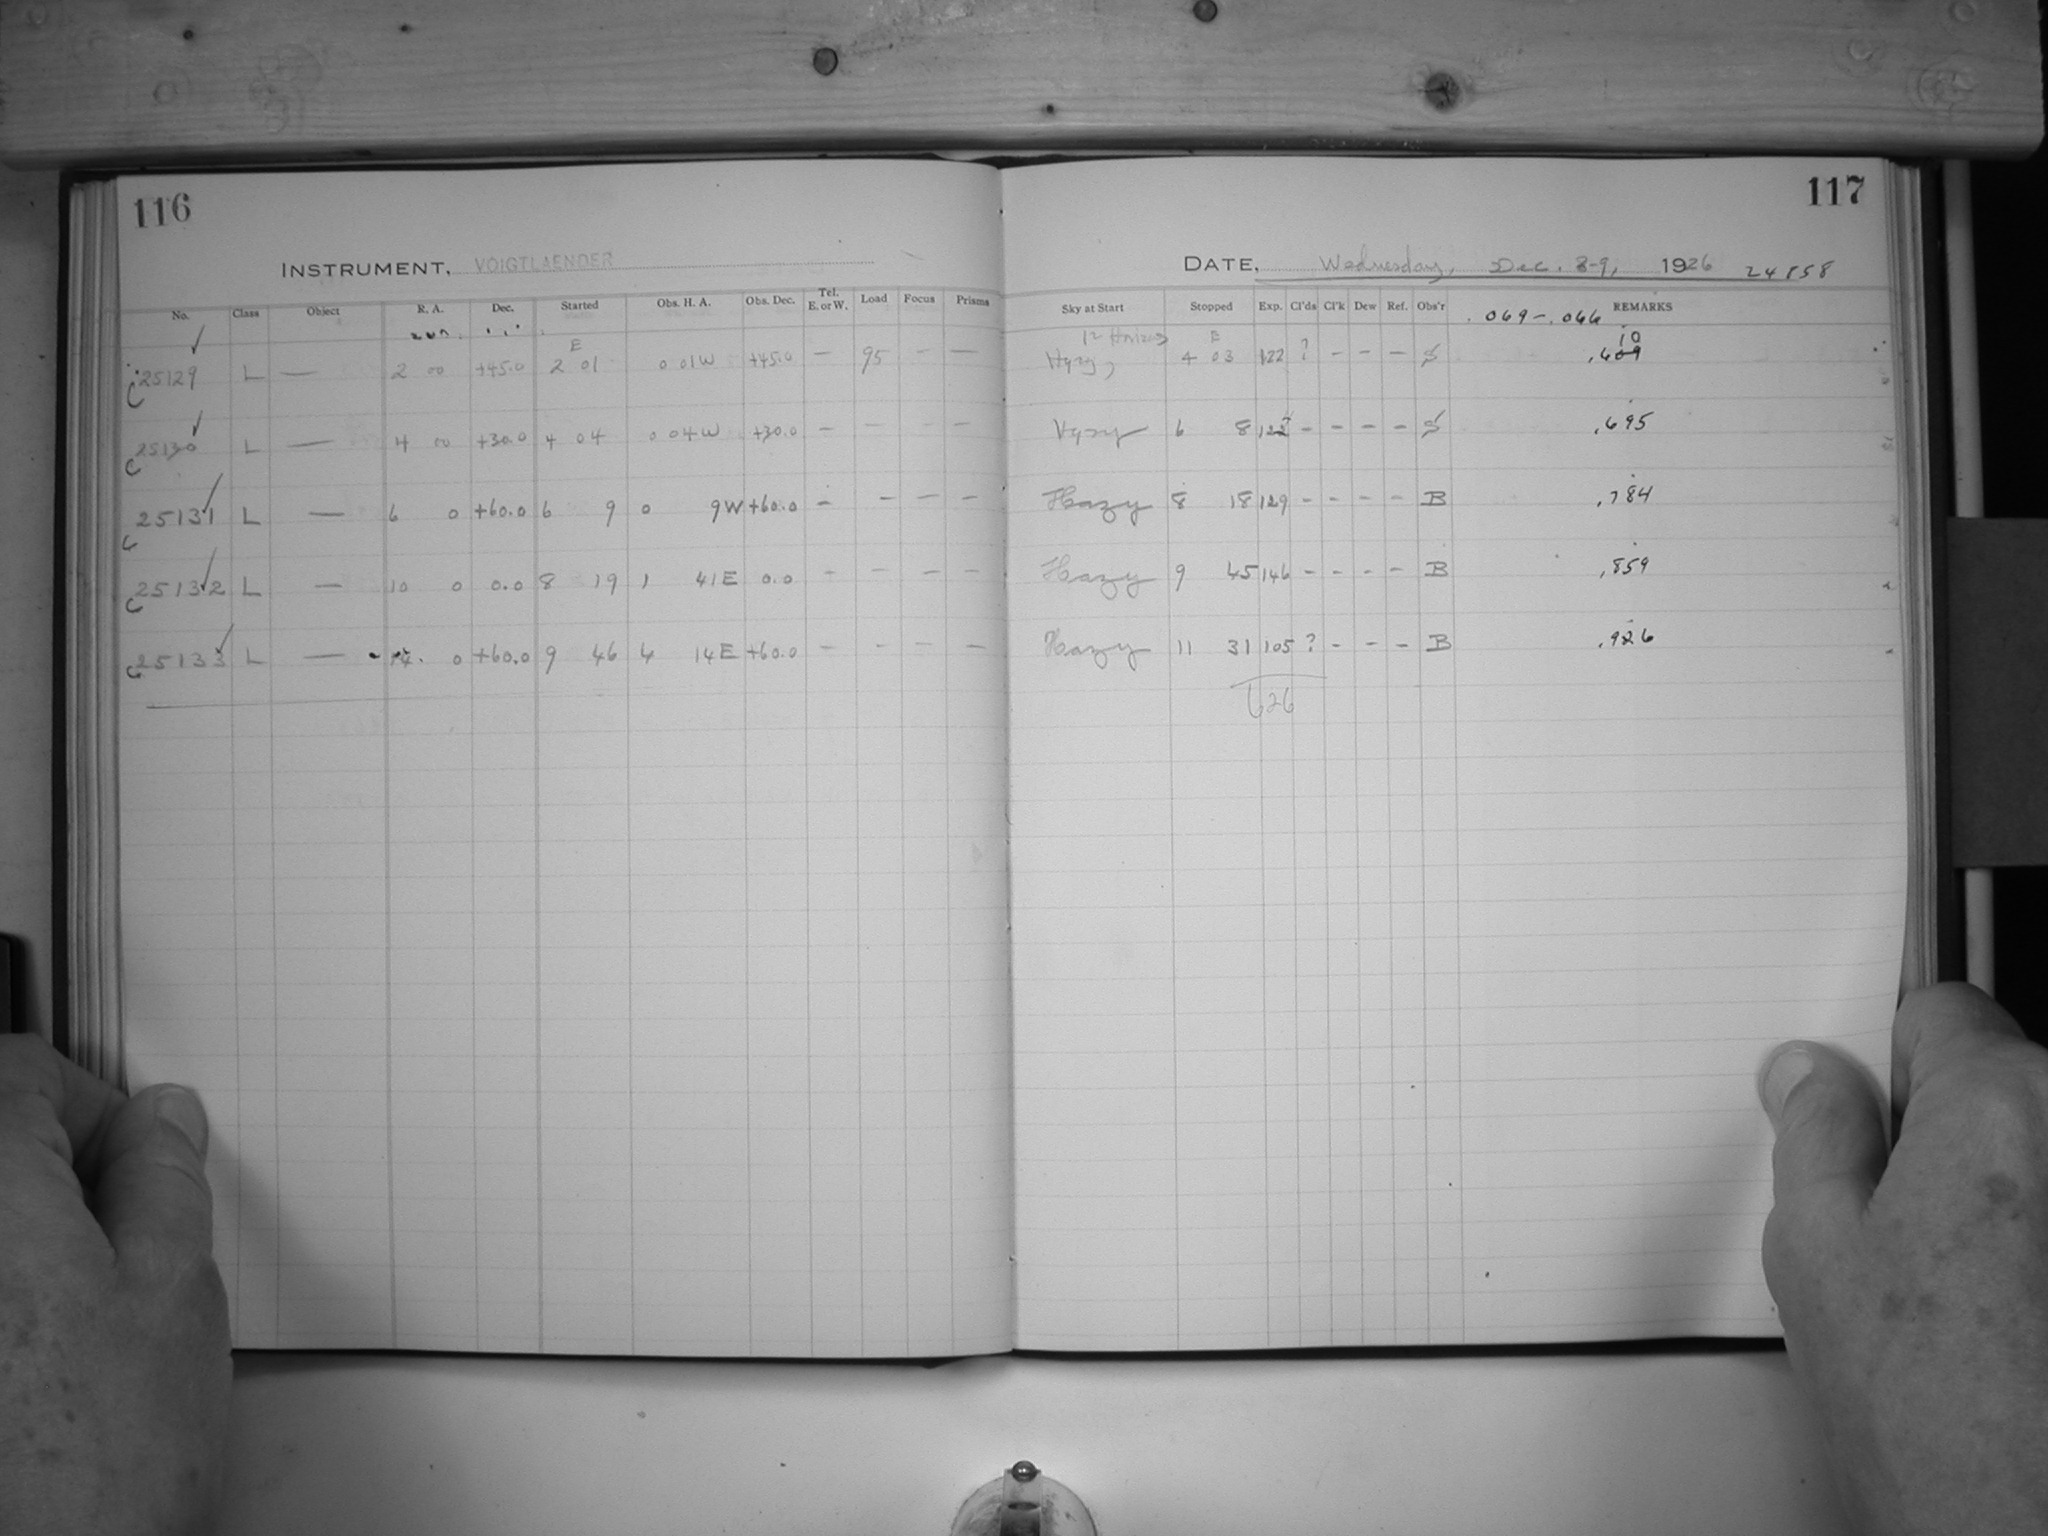 116
INSTRUMENT, VOIGTLAENDER
No. Class Object R. A. Dec. Started Obs. H. A. Obs. Dec. Tel. E. or W. Load Focus Prisms
25129 L — 2 00 +45.0 2 01 E 0 01W +45.0 — 95 — —
C
25130 L — 4 00 +30.0 4 04 0 04W +30.0 — — — —
C
25131 L — 6 0 +60.0 6 9 0 9W +60.0 — — — —
C
25132 L — 10 0 0.0 8 19 1 41E 0.0 — — — —
C
25133 L — 14 0 +60.0 9 46 4 14E +60.0 — — — —
C
117
DATE, Wednesday, Dec. 8-9, 1926 24858
Sky at Start Stopped Exp. Cl'ds Cl'k Dew Ref. Obs'r REMARKS
.069-.066
E 10
Hazy, 4 03 122 ? — — — S .609
Hazy 6 8 122 — — — — S .695
Hazy 8 18 129 — — — — B .784
Hazy 9 45 146 — — — — B .859
Hazy 11 31 105 ? — — — B .926
626